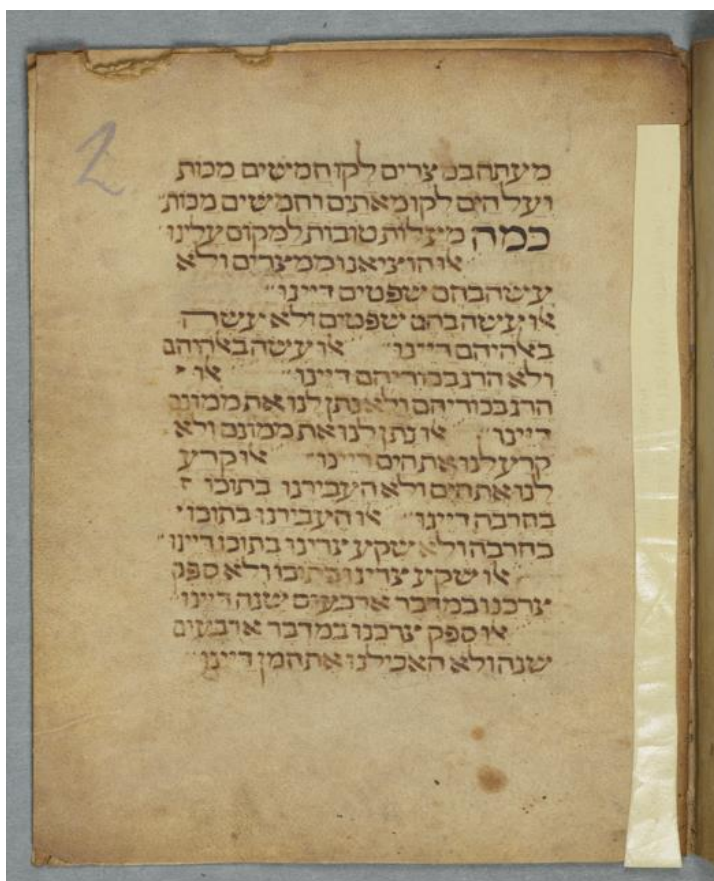 2
מעתה במצרים לקו חמישים מכות
ועל הים לקו מאתים וחמשים מכות
כמה מעלות טובות למקום עלינו
או הוציאנו ממצרים ולא
עשה בהם שפטים דיינו
או עשה בהם שפטים ולא עשה
באהיהם דיינו או עשה באהיהם
ולא הרג בכוריהם דיינו או
הרג בכוריהם ולא נתן לנו את ממונם
דיינו או נתן לנו את ממונם ולא
קרע לנו את הים דיינו או קרע
לנו את הים ולא העבירנו בתוכו
בחרבה דיינו או העבירנו בתוכו
בחרבה ולא שקע צרינו בתוכו דיינו
או שקע צרינו בתוכו ולא ספק
צרכנו במדבר ארבעים שנה דיינו
או ספק צרכנו במדבר ארבעים
שנה ולא האכילנו את המן דיינו